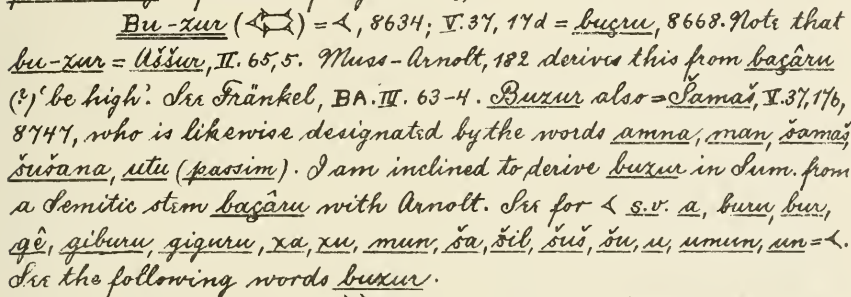 Bu-zur (𒌋) = 𒌋, 8634; V. 37, 17d = buçru, 8668. Note that
bu-zur = Aššur, II. 65, 5. Muss-Arnolt, 182 derives this from baçâru
(?) 'be high'. See Fränkel, BA. III. 63-4. Buzur also = Šamaš, V. 37, 17b,
8747, who is likewise designated by the words amna, man, šamaš,
šušana, utu (passim). I am inclined to derive buzur in Sum. from
a Semitic stem baçâru with Arnolt. See for 𒌋 s.v. a, buru, bur,
gê, giburu, giguru, xa, xu, mun, ša, šil, šuš, šu, u, umun, un = 𒌋.
See the following words buzur.